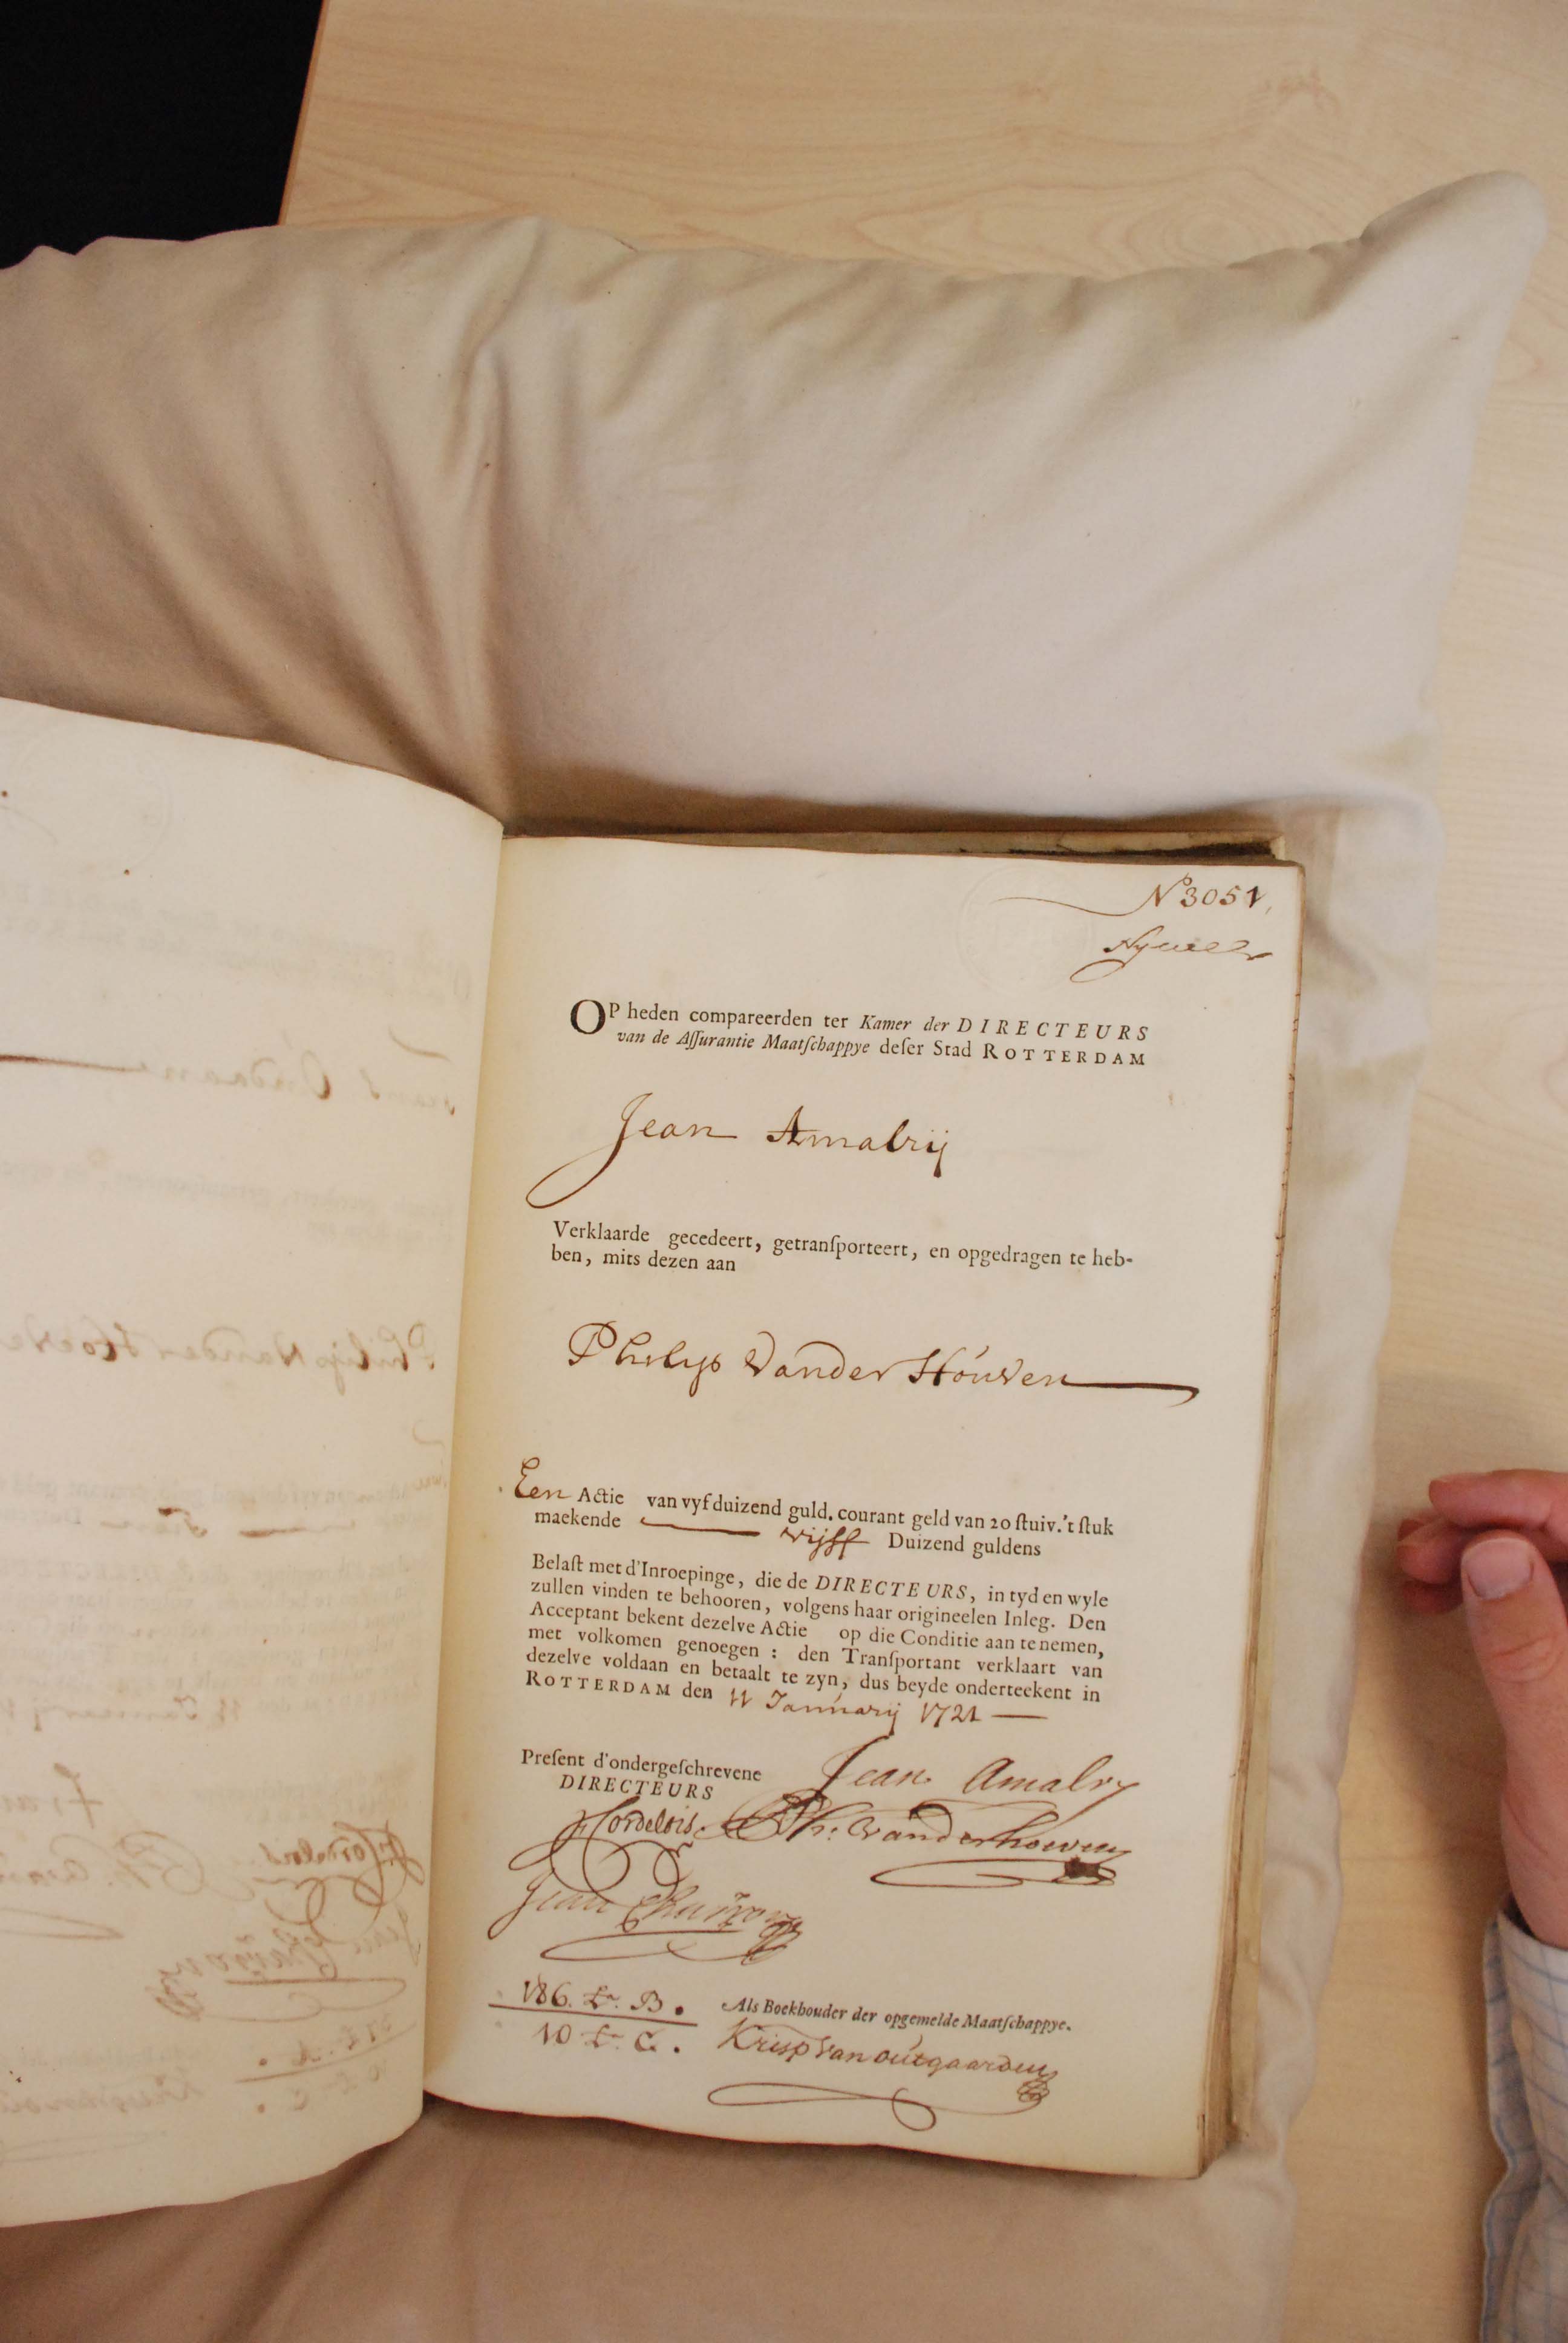 No 3051
OP heden compareerden ter Kamer der DIRECTEURS
van de Aſſurantie Maatſchappye deſer Stad ROTTERDAM
Jean Amalrij
Verklaarde gecedeert, getranſporteert, en opgedragen te heb-
ben, mits dezen aan
Philyp Vander Houven
Een Actie van vyf duizend guld. courant geld van 20 ſtuiv. 't ſtuk
maekende vijff Duizend guldens
Belaſt met d'Inroepinge, die de DIRECTEURS, in tyd en wyle
zullen vinden te behooren, volgens haar origineelen Inleg. Den
Acceptant bekent dezelve Actie op die Conditie aan te nemen,
met volkomen genoegen : den Tranſportant verklaart van
dezelve voldaan en betaalt te zyn, dus beyde onderteekent in
ROTTERDAM den 11 Januarij 1721
Preſent d'ondergeſchrevene
DIRECTEURS
Jean Amalry
Cordelois
Ph: Vanderhoeven
Jean
186. Lr. B.
10 Lr C.
Als Boekhouder der opgemelde Maatſchappye.
Krisp van outgaarden